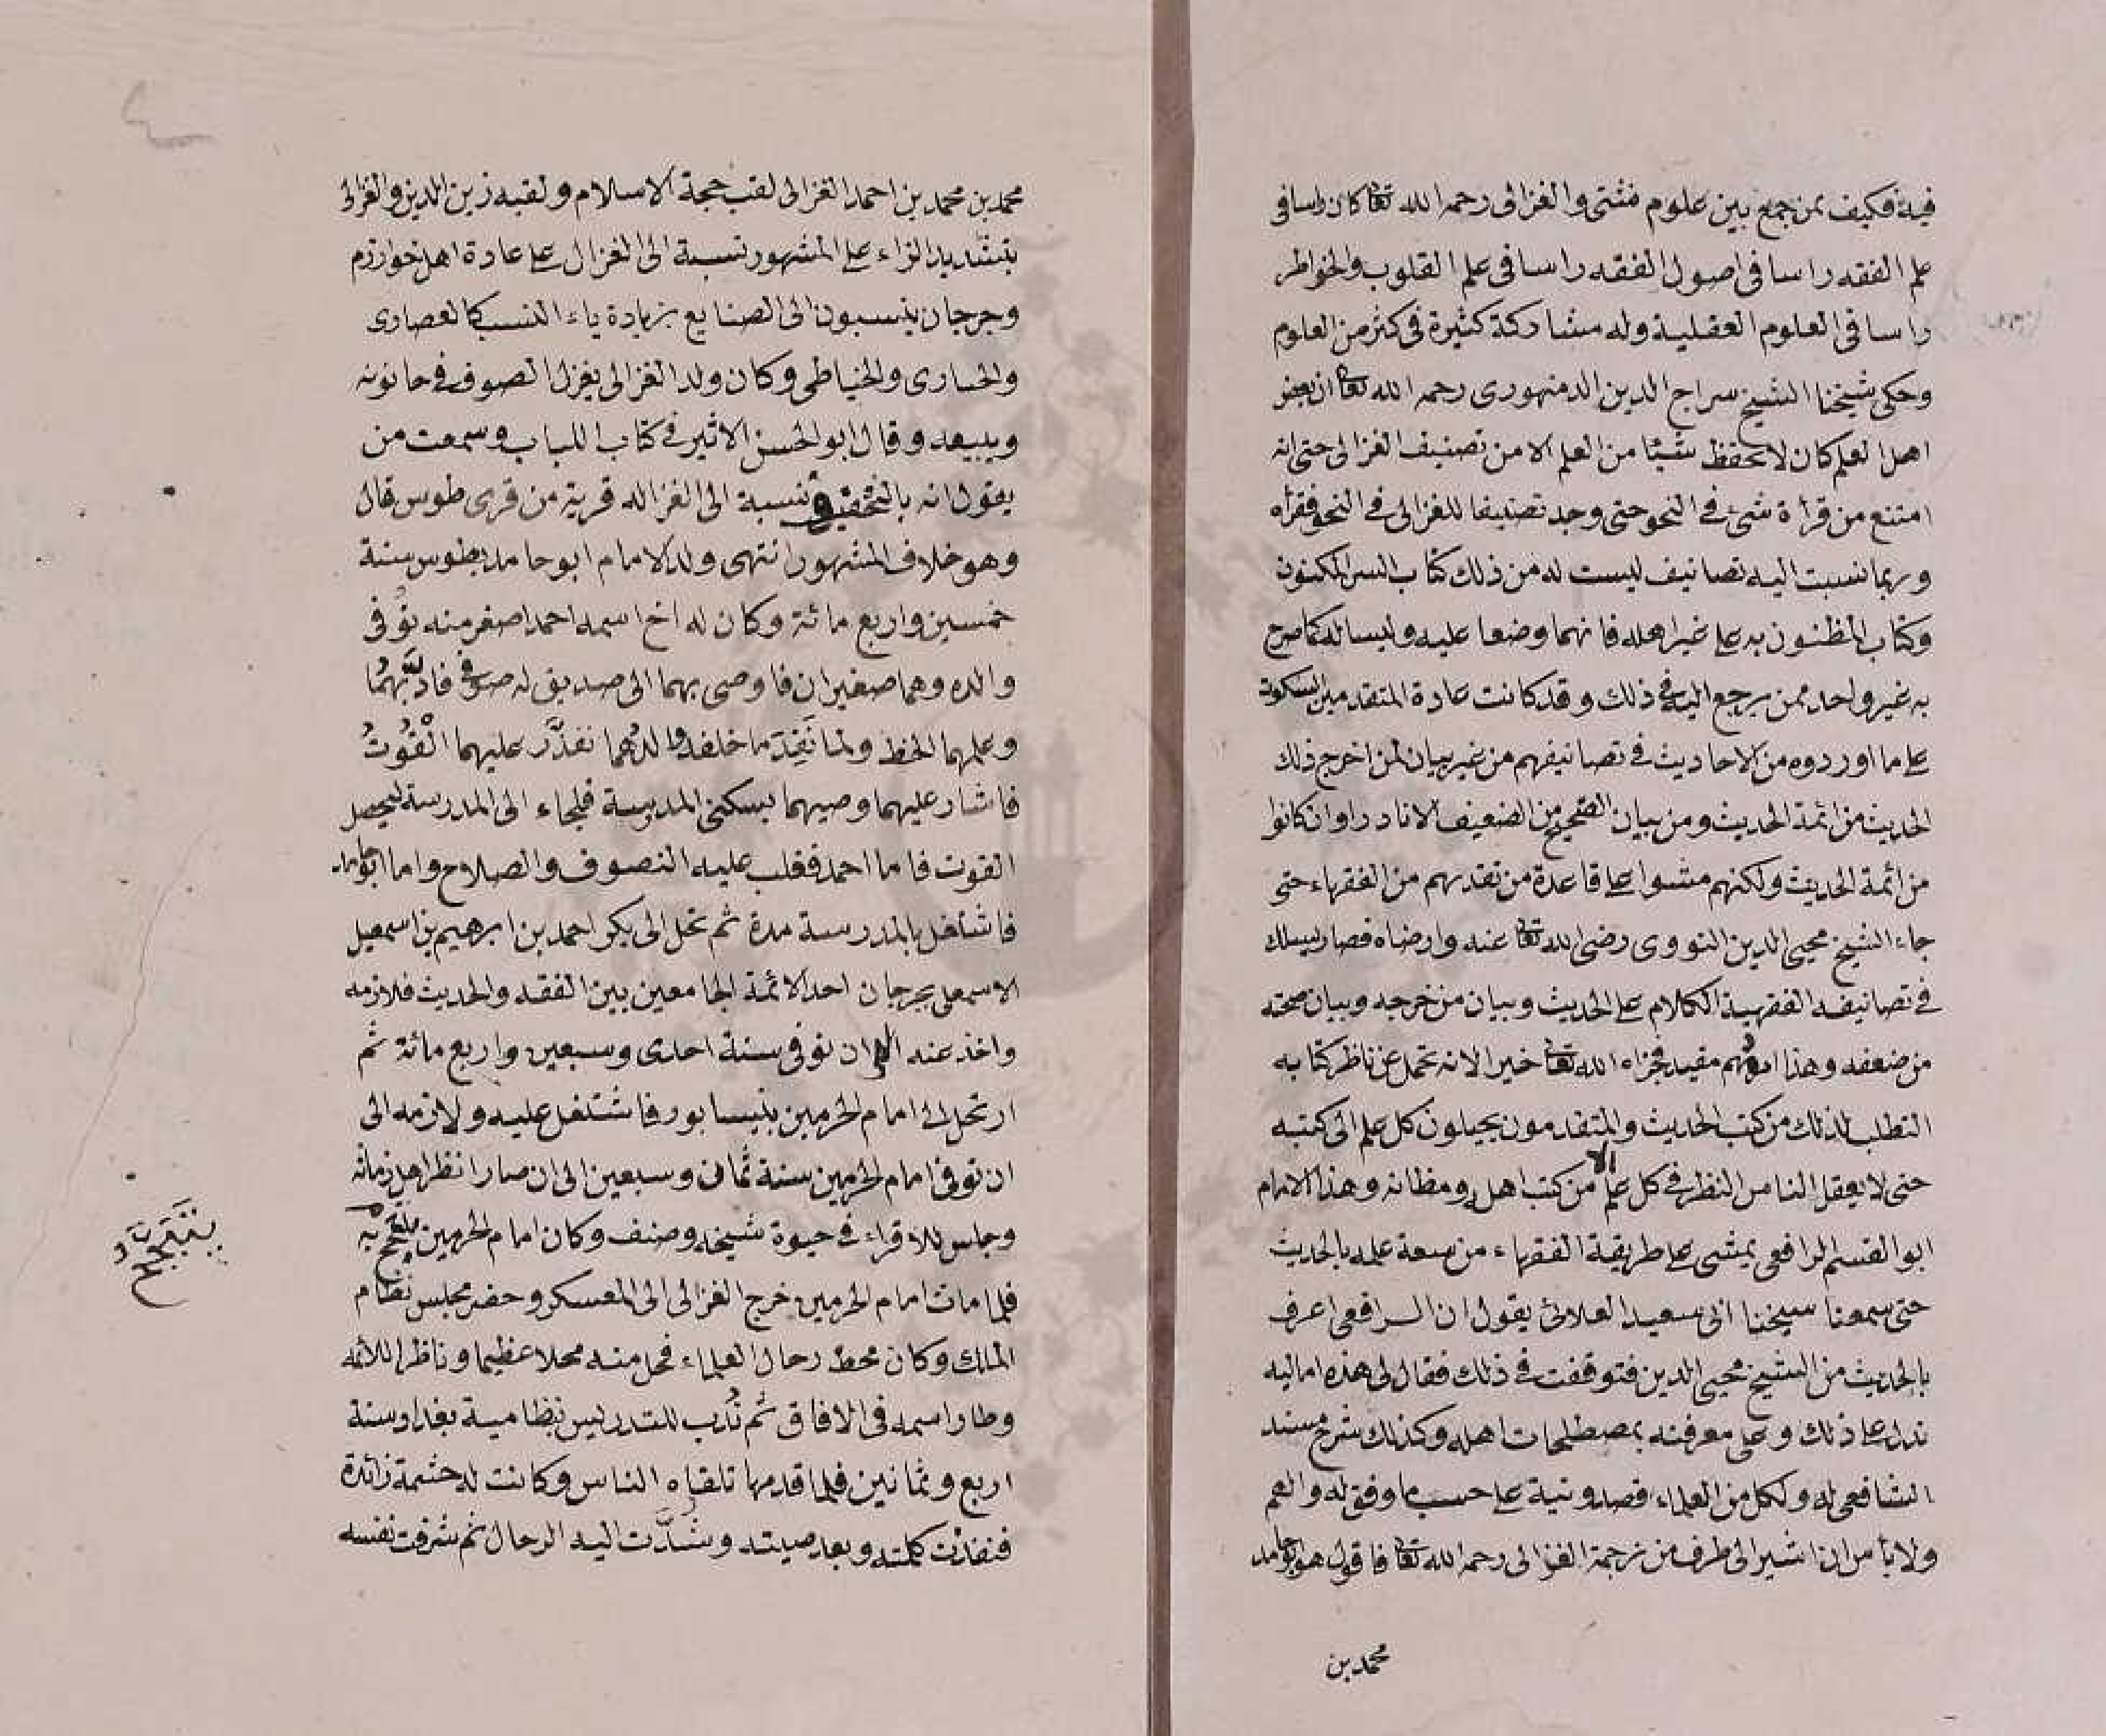 فيه فكيف بمن جمع بين علوم فشتى والغزالى رحمه الله تعا كان راسا فى
علم الفقه راسا فى اصول الفقه راسا فى علم القلوب والخواطر
راسا فى العلوم العقلية وله مشاركة كثيرة فى كثر من العلوم
وحكى شيخنا الشيخ سراج الدين الدمنهورى رحمه الله تعا ان بعض
اهل العلم كان لا يحفظ شيئا من العلم الا من تصنيف الغزالى حتى انه
امتنع من قرأة شئ فى النحو حتى وجد تصنيفا للغزالى فى النحو فقرأه
وربما نسبت اليه تصانيف ليست له من ذلك كتاب السر المكنون
وكتاب المظنون به على غير اهله فانهما وضعا عليه وليسا له كما صرح
به غير واحد ممن يرجع اليه فى ذلك وقد كانت عادة المتقدمين السكوت
على ما اوردوه من الاحاديث فى تصانيفهم من غير بيان لمن اخرج ذلك
الحديث من ائمة الحديث ومن بيان الصحيح من الضعيف الا نادرا وان كانوا
من ائمة الحديث ولكنهم مشوا على قاعدة من تقدمهم من الفقهاء حتى
جاء الشيخ محيى الدين النووى رضى الله تعا عنه وارضاه فصار يسلك
فى تصانيفه الفقهية الكلام على الحديث وبيان من خرجه وبيان صحته
من ضعفه وهذا مهم مفيد فجزاه الله تعا خيرا لانه تحمل عن ناظر كتابه
التطلب لذلك من كتب الحديث والمتقدمون يحيلون كل علم الى كتبه
حتى لا يعقل الناس النظر فى كل علم الا من كتب اهله ومظانه وهذا الامام
ابو القسم الرافعى يمشى على طريقة الفقهاء من سعة علمه بالحديث
حتى سمعنا سيخنا ابى سعيد العلائى يقول ان الرافعى اعرف
بالحديث من الشيخ محيى الدين فتوقفت فى ذلك فقال لى هذه اماليه
تدل على ذلك وعلى معرفته بمصطلحات اهله وكذلك شرح مسند
الشافعى له ولكل من العلماء قصد ونية على حسب ما وفق له والهم
ولا بأس ان اشير الى طرف من ترجمة الغزالى رحمه الله تعا فاقول هو ابو حامد
محمد بن
محمد بن محمد بن احمد الغزالى لقب حجة الاسلام ولقبه زين الدين والغزالى
بتشديد الزاء على المشهور نسبة الى الغزال على عادة اهل خوارزم
وجرجان ينسبون الى الصنايع بزيادة ياء النسب كالعصارى
والخبازى والخياطى وكان ولد الغزالى يغزل الصوف فى حانوته
ويبيعه وقال ابو الحسن الاثير فى كتاب اللباب وسمعت من
يقول انه بالتخفيف نسبة الى الغزاله قرية من قرى طوس قال
وهو خلاف المشهور انتهى ولد الامام ابو حامد بطوس سنة
خمسين واربع مائة وكان له اخ اسمه احمد اصغر منه توفى
والده وهما صغيران فاوصى بهما الى صديق له صوفى فادبهما
وعلمهما الخط ولما نفذ ما خلفه والدهما تعذر عليهما القوت
فاشار عليهما وصيهما بسكنى المدرسة فلجاء الى المدرسة ليحصل
القوت فاما احمد فغلب عليه التصوف والصلاح واما ابو حامد
فاشتغل بالمدرسة مدة ثم تحل الى بكر احمد بن ابرهيم بن اسمعيل
الاسمعلى بجرجان احد الائمة الجامعين بين الفقه والحديث فلازمه
واخذ عنه الى ان توفى سنة احدى وسبعين واربع مائة ثم
ارتحل الى امام الحرمين بنيسابور فاشتغل عليه ولازمه الى
ان توفى امام الحرمين سنة ثمان وسبعين الى ان صار انظر اهل زمانه
وجلس للاقراء فى حيوة شيخه وصنف وكان امام الحرمين يتبجح به
فلما مات امام الحرمين خرج الغزالى الى المعسكر وحضر مجلس نظام
الملك وكان محط رحال العلماء فحل منه محلا عظيما وناظر الائمة
وطار اسمه فى الافاق ثم ندب للتدريس بنظامية بغداد سنة
اربع وثمانين فلما قدمها تلقاه الناس وكانت له حشمة زائدة
فنفذت كلمته وبعد صيته وشدت اليه الرحال ثم شرفت نفسه